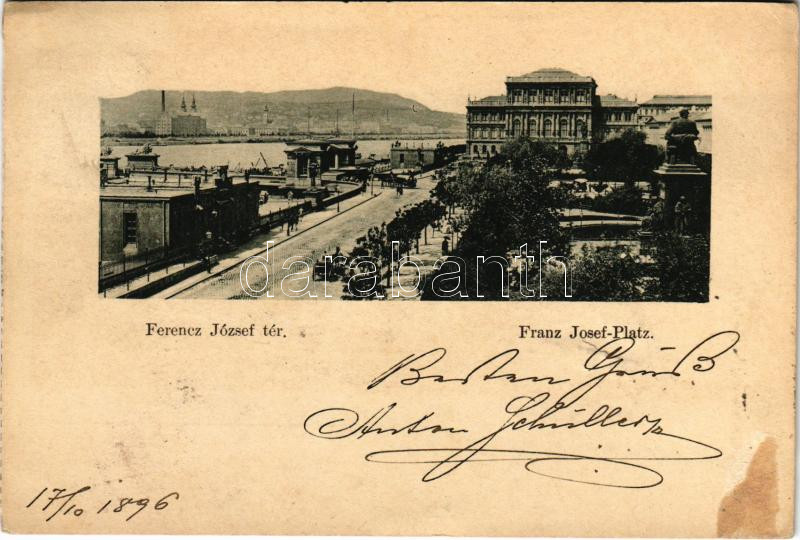 darabanth
Ferencz József tér.
Franz Josef-Platz.
Besten Gruß
Anton Schuller
17/10 1896